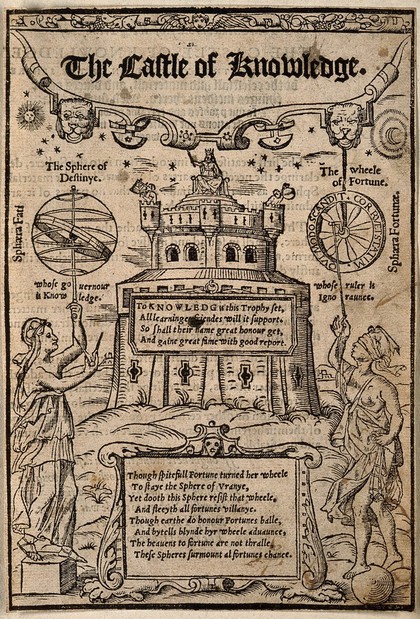 The Castle of Knowledge.
The Sphere of
Destinye.
Sphæra Fati
whose gouernour
is Knowledge.
The wheele
of Fortune.
Sphæra Fortunæ.
whose ruler is
Ignoraunce.
To KNOWLEDG is this Trophy set,
All learninges friendes will it support,
So shall their name great honour get,
And gaine great fame with good report.
Though spitefull Fortune turned her wheele
To staye the Sphere of Vranye,
Yet dooth this Sphere resist that wheele,
And fleeyth all fortunes villanye.
Though earthe do honour Fortunes balle,
And bytells blynde hyr wheele aduaunce,
The heauens to fortune are not thralle,
These Spheres surmount al fortunes chance.